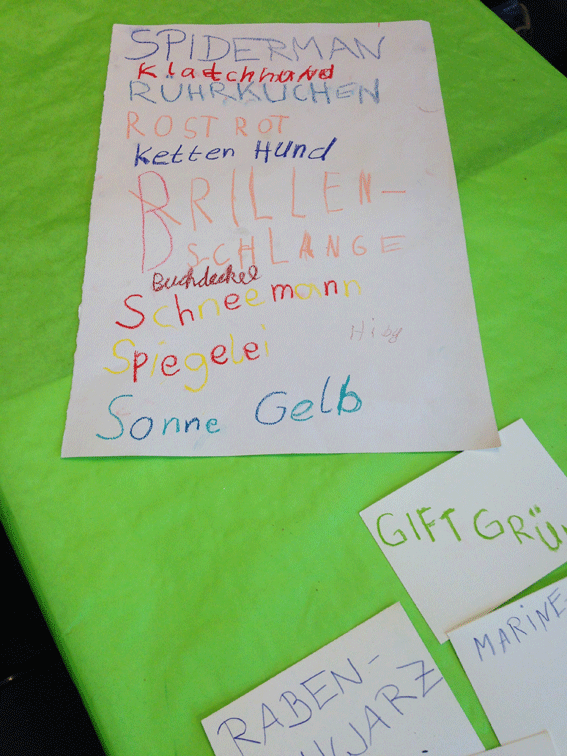 SPIDERMAN
Klatschhand
RUHRKUCHEN
ROST ROT
Ketten Hund
BRILLEN-
SCHLANGE
Buchdeckel
Schneemann
Spiegelei
Sonne Gelb
GIFT GRÜ
MARINE-
RABEN-